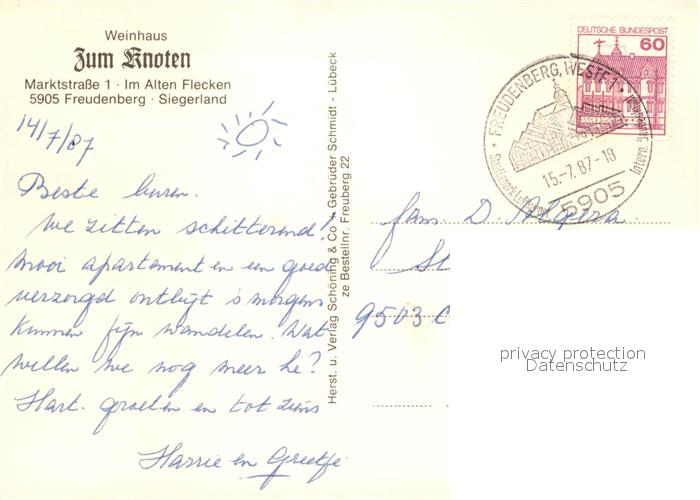 Weinhaus
Zum Knoten
Marktstraße 1 · Im Alten Flecken
5905 Freudenberg · Siegerland
14/7/87
Beste buren.
We zitten schitterend!
mooi apartement en een goed
verzorgd ontbijt s morgens
kunnen fijn wandelen. Wat
willen we nog meer he?
Hart. groeten en tot ziens
Harrie en Greetje
Herst. u. Verlag Schöning & Co + Gebrüder Schmidt - Lübeck
ze Bestellnr. Freuberg 22
DEUTSCHE BUNDESPOST
60
FREUDENBERG, WESTF 1
15.-7. 87-18
5905
fam. D.
St
9503 C
privacy protection
Datenschutz